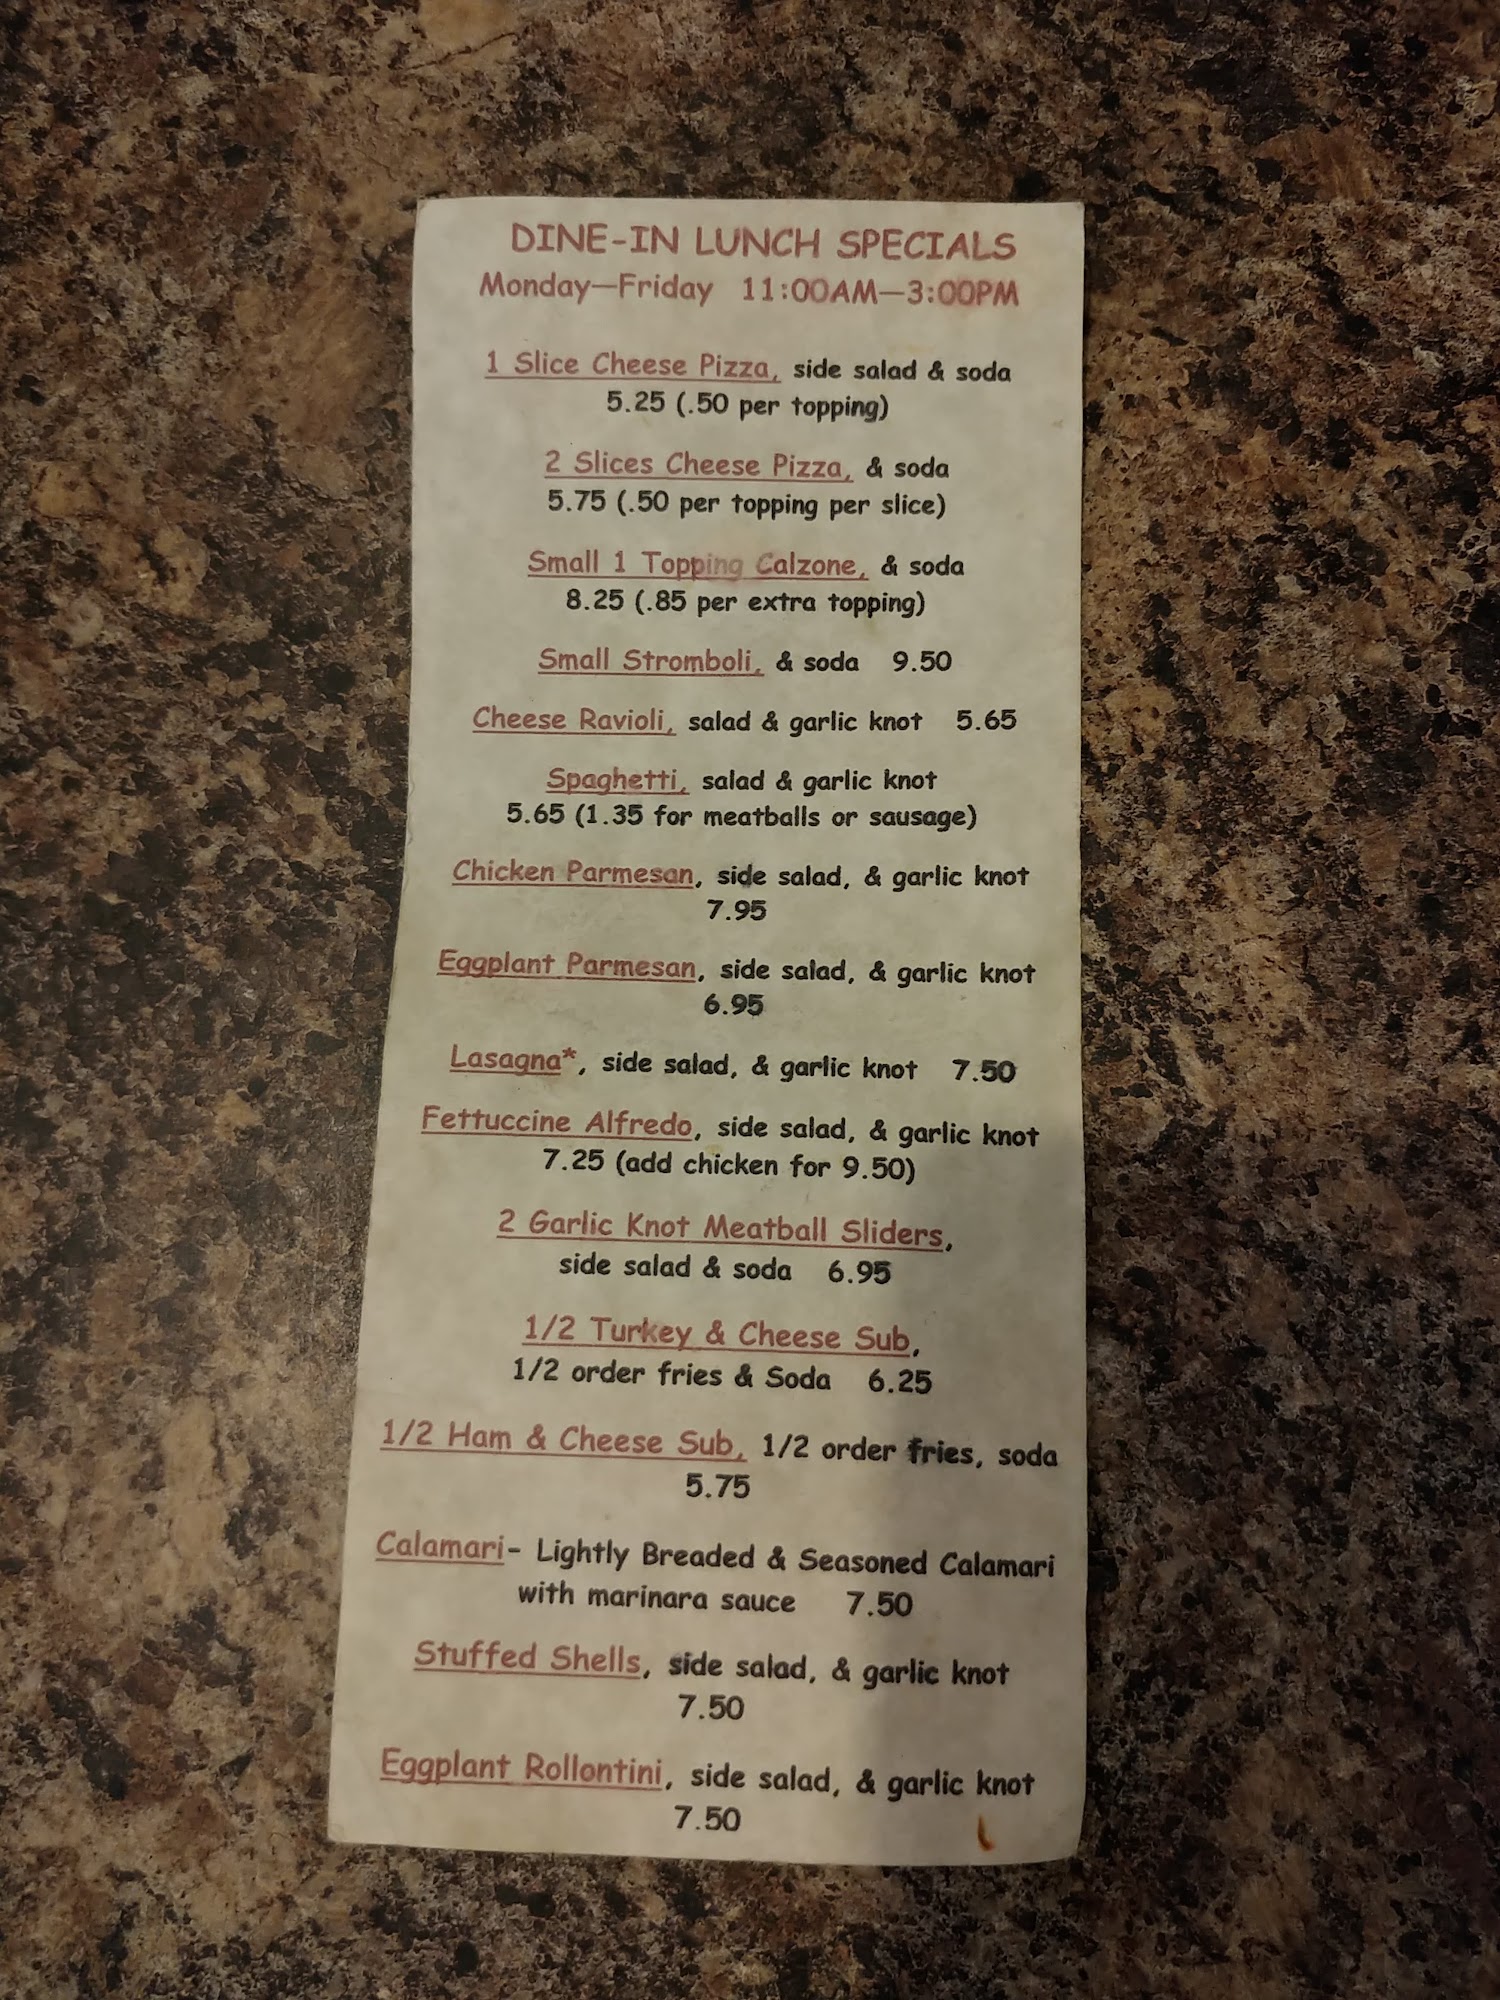 DINE-IN LUNCH SPECIALS
Monday—Friday 11:00AM—3:00PM
1 Slice Cheese Pizza, side salad & soda
5.25 (.50 per topping)
2 Slices Cheese Pizza, & soda
5.75 (.50 per topping per slice)
Small 1 Topping Calzone, & soda
8.25 (.85 per extra topping)
Small Stromboli, & soda 9.50
Cheese Ravioli, salad & garlic knot 5.65
Spaghetti, salad & garlic knot
5.65 (1.35 for meatballs or sausage)
Chicken Parmesan, side salad, & garlic knot
7.95
Eggplant Parmesan, side salad, & garlic knot
6.95
Lasagna*, side salad, & garlic knot 7.50
Fettuccine Alfredo, side salad, & garlic knot
7.25 (add chicken for 9.50)
2 Garlic Knot Meatball Sliders,
side salad & soda 6.95
1/2 Turkey & Cheese Sub,
1/2 order fries & Soda 6.25
1/2 Ham & Cheese Sub, 1/2 order fries, soda
5.75
Calamari- Lightly Breaded & Seasoned Calamari
with marinara sauce 7.50
Stuffed Shells, side salad, & garlic knot
7.50
Eggplant Rollontini, side salad, & garlic knot
7.50